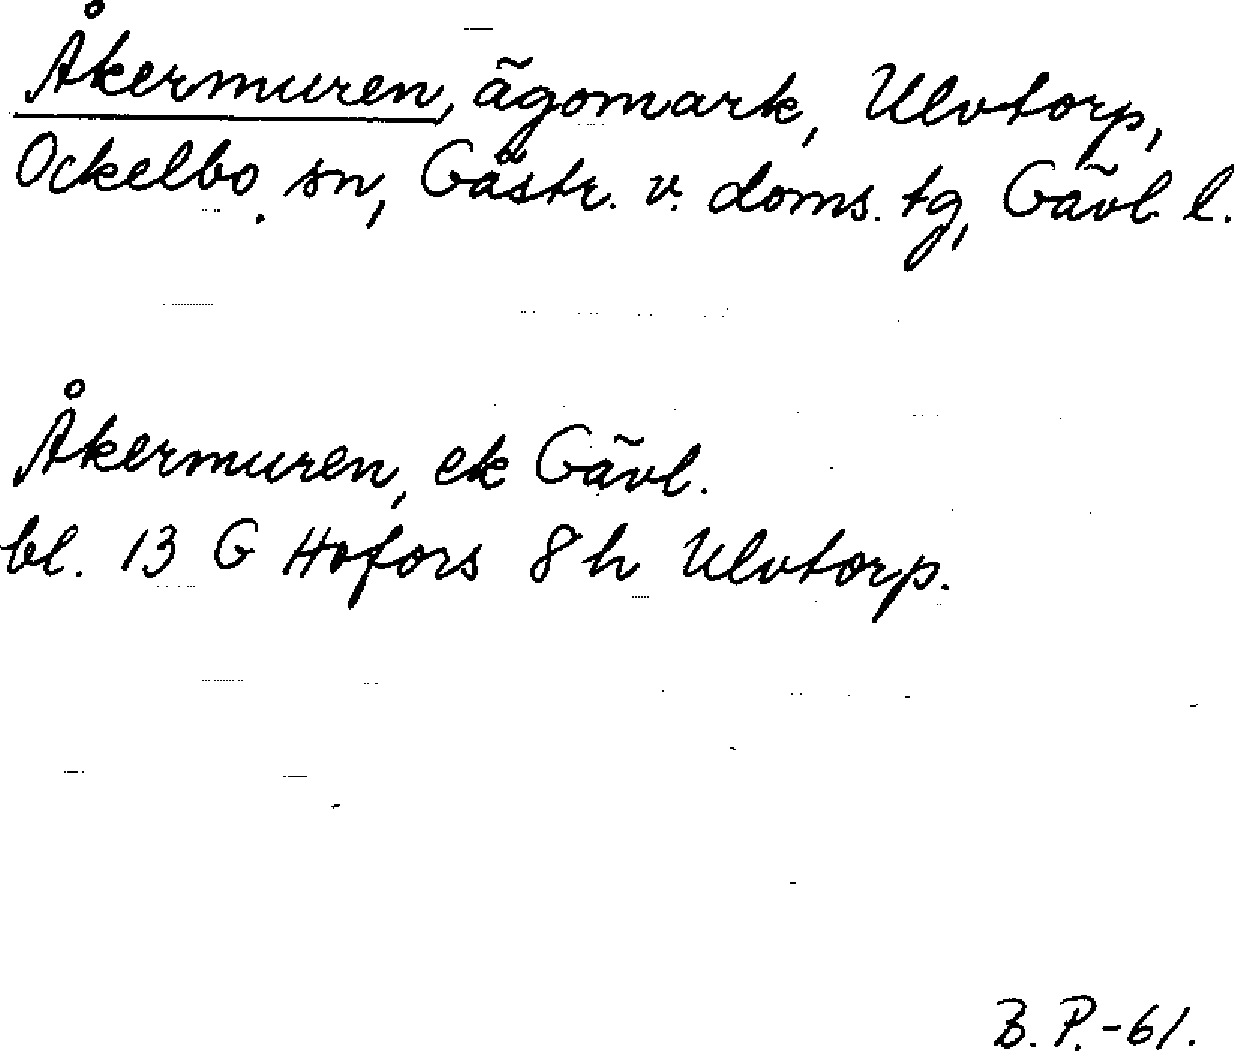 Åkermuren, ägomark, Ulvtorp,
Ockelbo sn, Gästr. v. doms. tg, Gävl. l.
Åkermuren, ek Gävl.
bl. 13 G Hofors 8 h Ulvtorp.
B. P. -61.